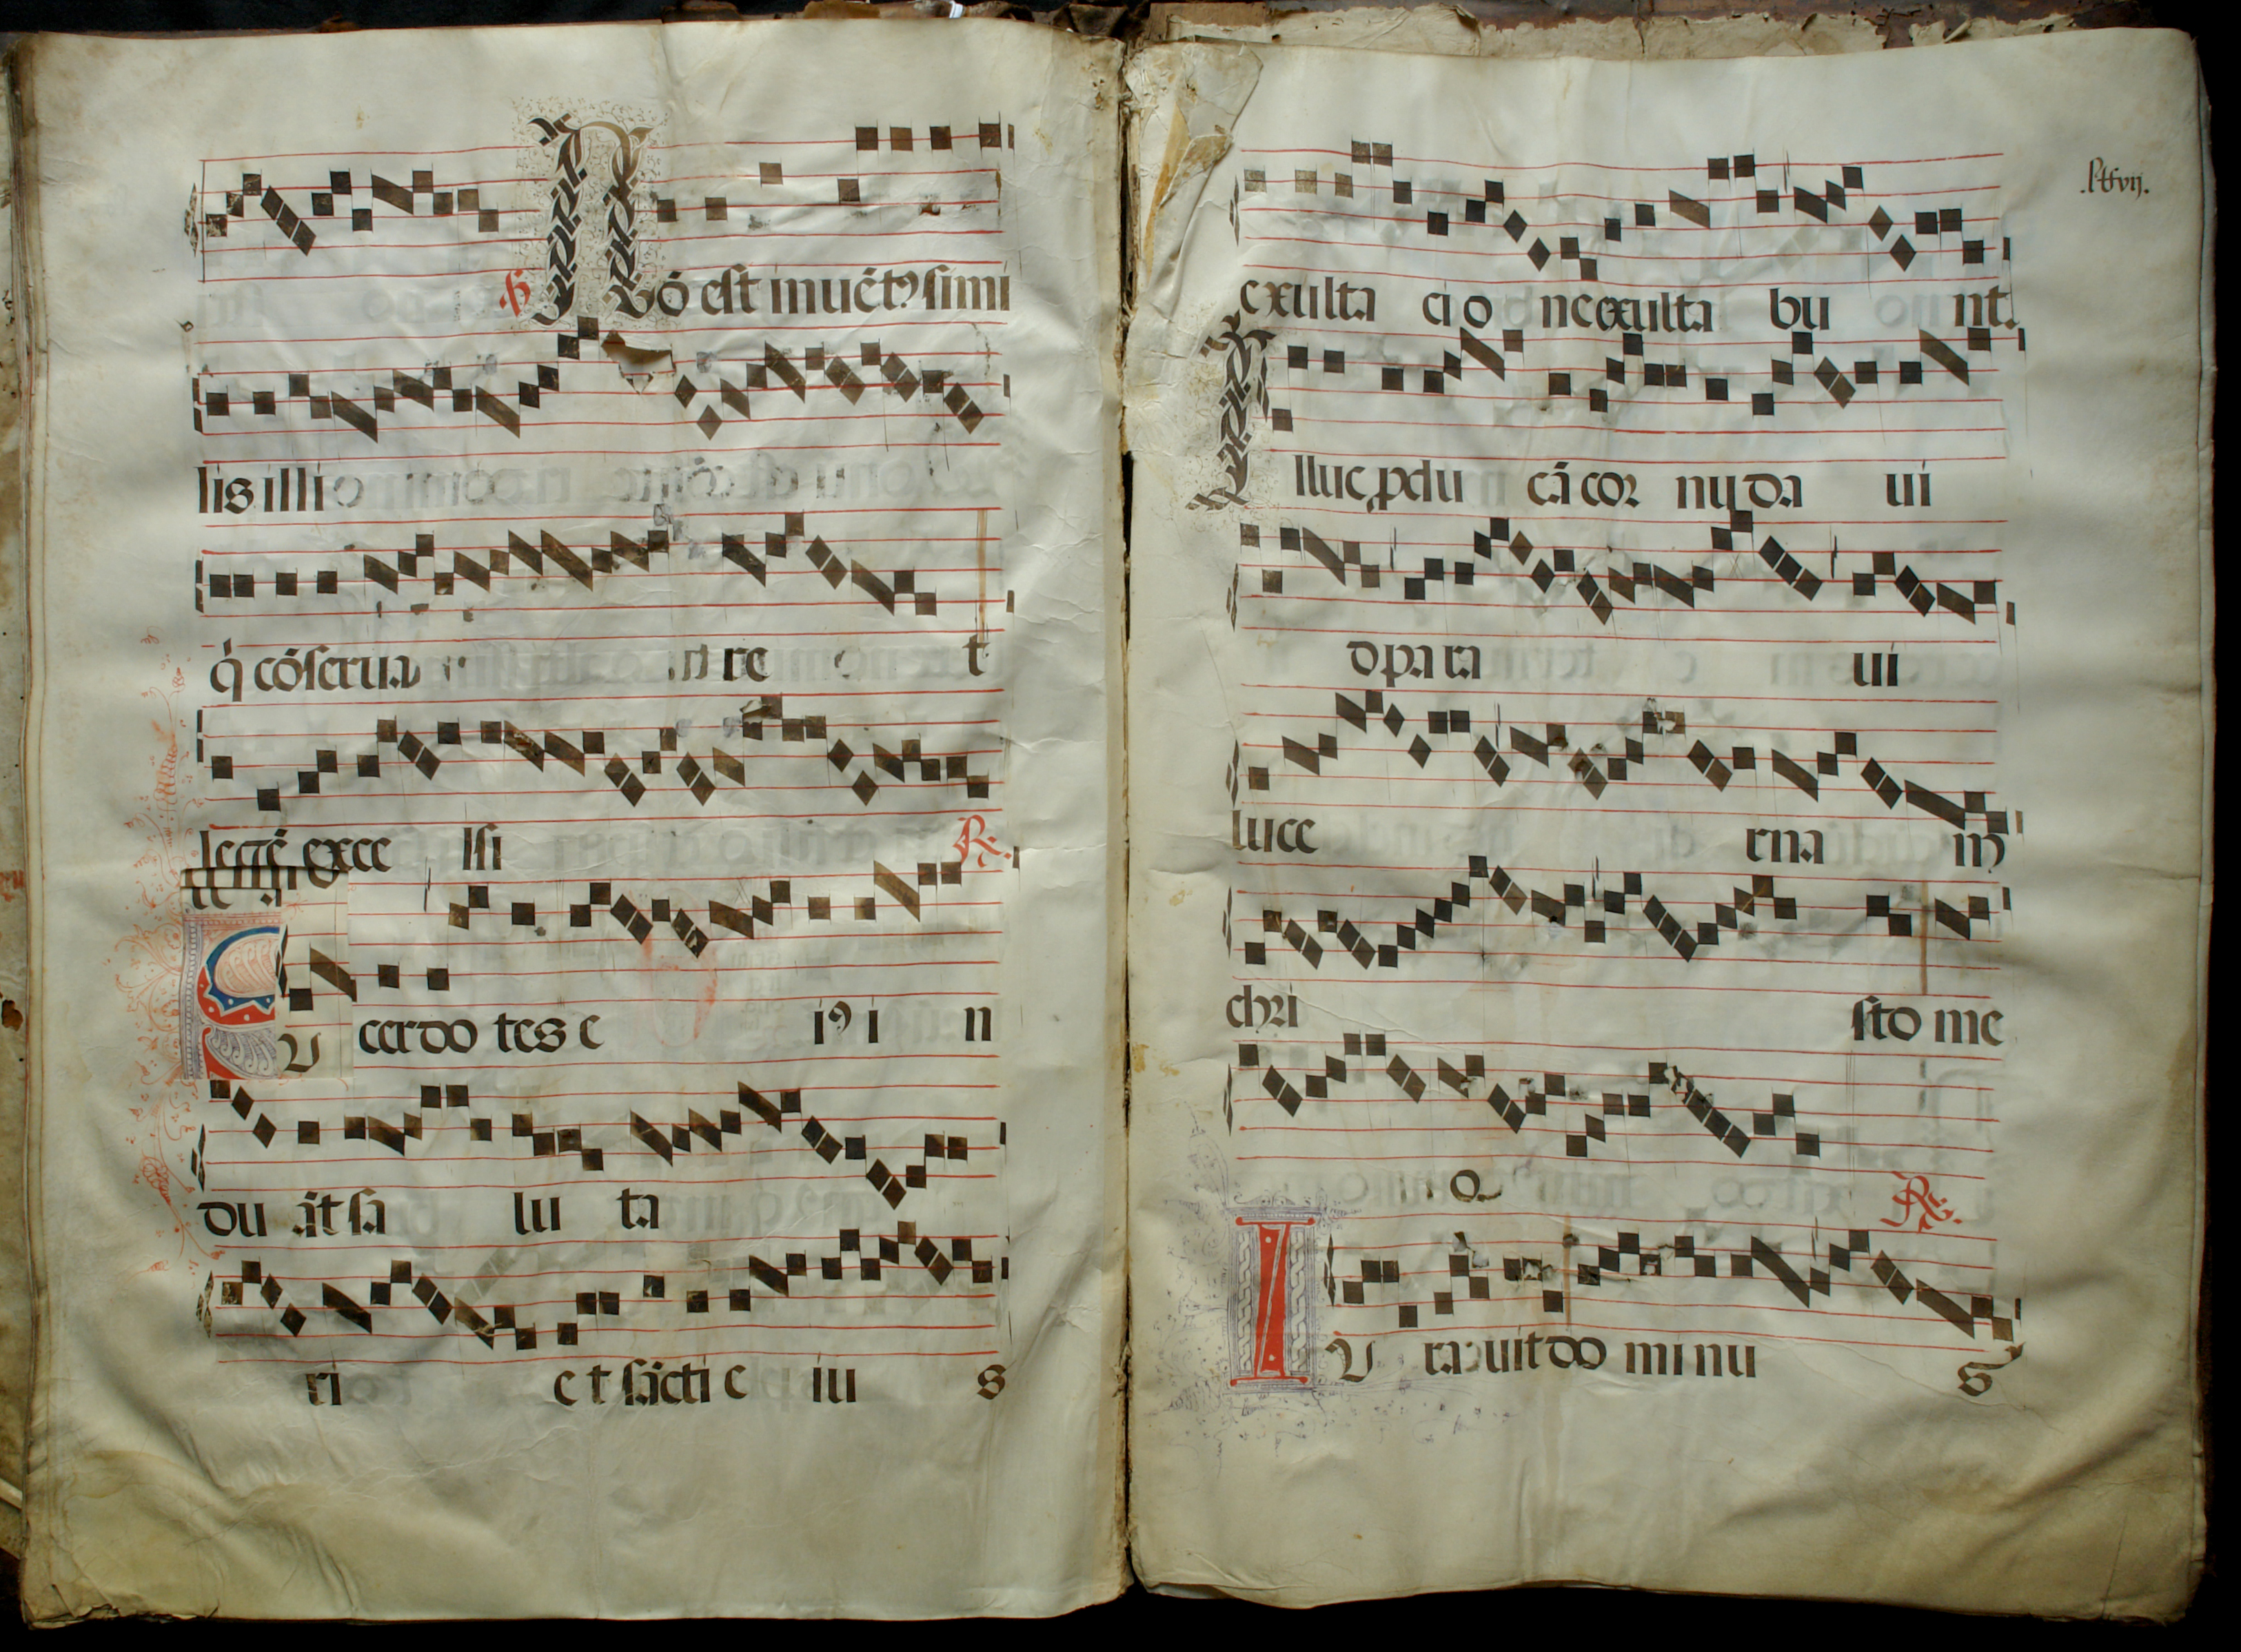 Nõ est inuẽtꝰ simi
lis illi
q̇ cõserua ret
legẽ exce lsi ℟.
Sacerdo tes e iꝰ i n
du ãt sa lu ta
ri e t sãcti e iu s
exulta ci o ne exulta bu nt.
Illuc ꝓdu cã cor nu da ui
d para ui
luce rna m
chri sto me
o ℟.
Iu rauit do mi nu s